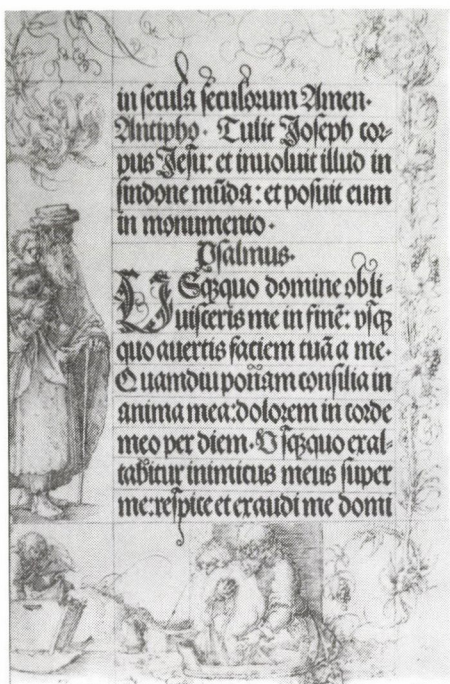 in secula seculorum Amen·
Antipho· Tulit Joseph cor-
pus Jesu: et inuoluit illud in
sindone mūda: et posuit eum
in monumento·
Psalmus·
USqꝫquo domine obli-
uisceris me in finē: vsqꝫ
quo auertis faciem tuā a me·
Quamdiu ponam consilia in
anima mea: dolorem in corde
meo per diem· Vsqꝫquo exal-
tabitur inimicus meus super
me: respice et exaudi me domi